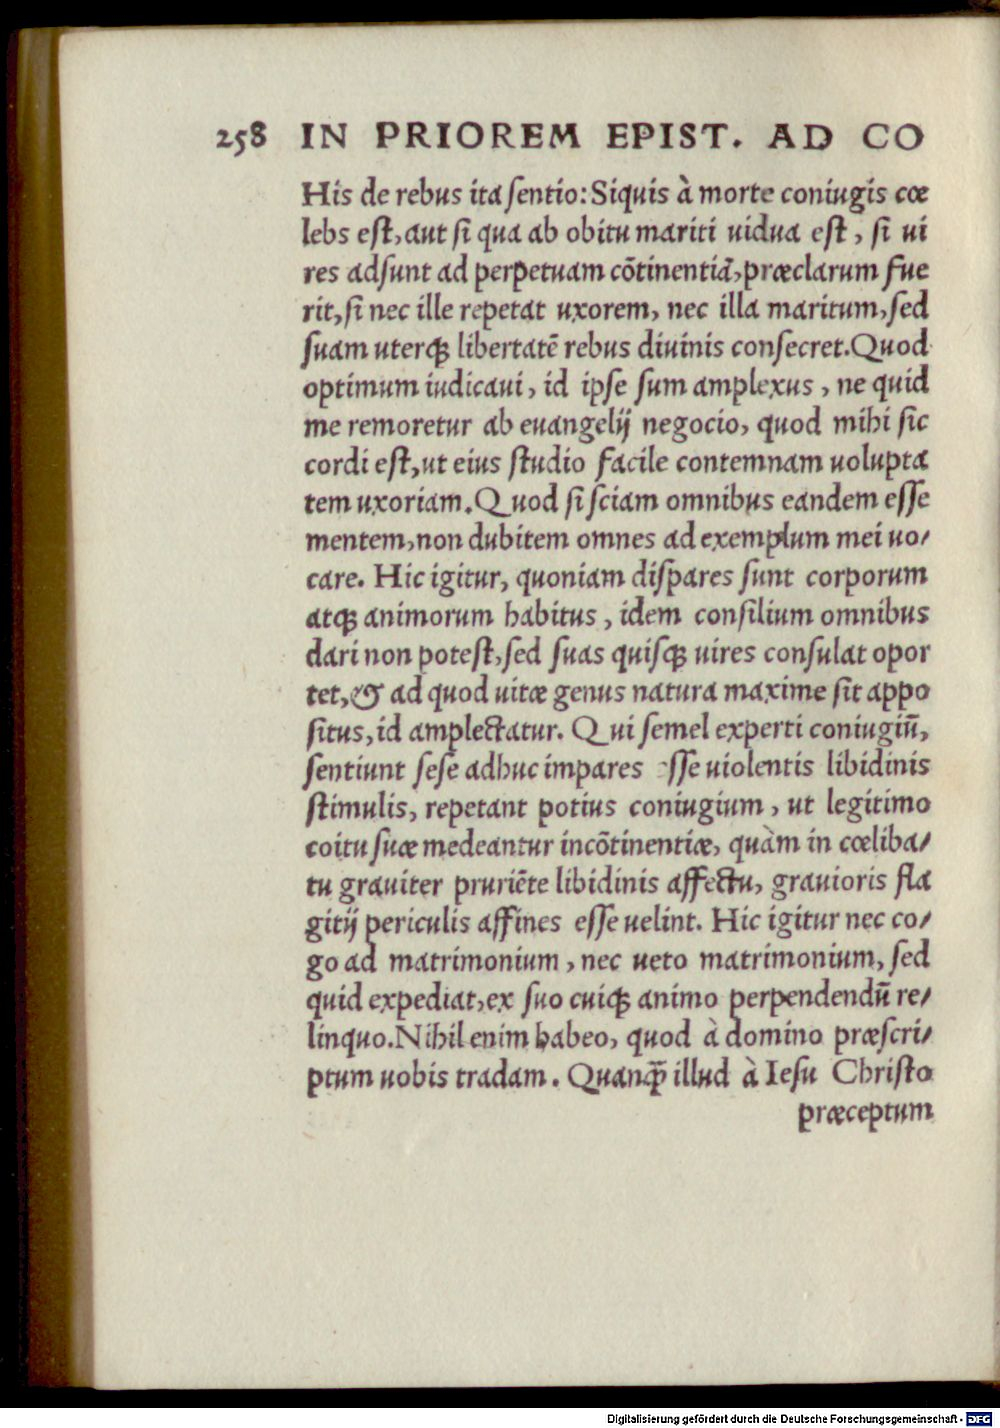 258 IN PRIOREM EPIST. AD CO
His de rebus ita ſentio: Siquis à morte coniugis cœ
lebs eſt, aut ſi qua ab obitu mariti uidua eſt, ſi ui
res adſunt ad perpetuam cõtinentiã, præclarum fue
rit, ſi nec ille repetat uxorem, nec illa maritum, ſed
ſuam uterq; libertatẽ rebus diuinis conſecret. Quod
optimum iudicaui, id ipſe ſum amplexus, ne quid
me remoretur ab euangelij negocio, quod mihi ſic
cordi eſt, ut eius ſtudio facile contemnam uolupta
tem uxoriam. Quod ſi ſciam omnibus eandem eſſe
mentem, non dubitem omnes ad exemplum mei uo/
care. Hic igitur, quoniam diſpares ſunt corporum
atq; animorum habitus, idem conſilium omnibus
dari non poteſt, ſed ſuas quiſq; uires conſulat opor
tet, & ad quod uitæ genus natura maxime ſit appo
ſitus, id amplectatur. Qui ſemel experti coniugiũ,
ſentiunt ſeſe adhuc impares eſſe uiolentis libidinis
ſtimulis, repetant potius coniugium, ut legitimo
coitu ſuæ medeantur incõtinentiæ, quàm in cœliba/
tu grauiter pruriẽte libidinis affectu, grauioris fla
gitij periculis affines eſſe uelint. Hic igitur nec co/
go ad matrimonium, nec ueto matrimonium, ſed
quid expediat, ex ſuo cuiq; animo perpendendũ re/
linquo. Nihil enim habeo, quod à domino præſcri/
ptum uobis tradam. Quanq̃ illud à Ieſu Chriſto
præceptum
Digitalisierung gefördert durch die Deutsche Forschungsgemeinschaft - DFG